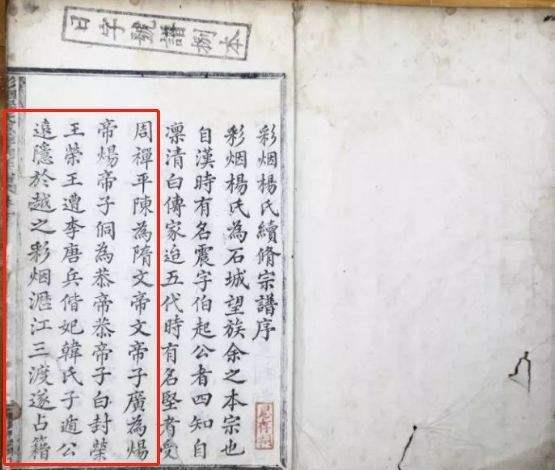 日字號譜捌本
彩烟楊氏續脩宗譜序
彩烟楊氏為石城望族余之本宗也
自漢時有名震字伯起公者四知自
凛清白傳家迨五代時有名堅者受
周禪平陳為隋文帝文帝子廣為煬
帝煬帝子侗為恭帝恭帝子白封榮
王榮王遭李唐兵偕妃韓氏子逈公
遠隱於越之彩烟遯江三渡遂占籍